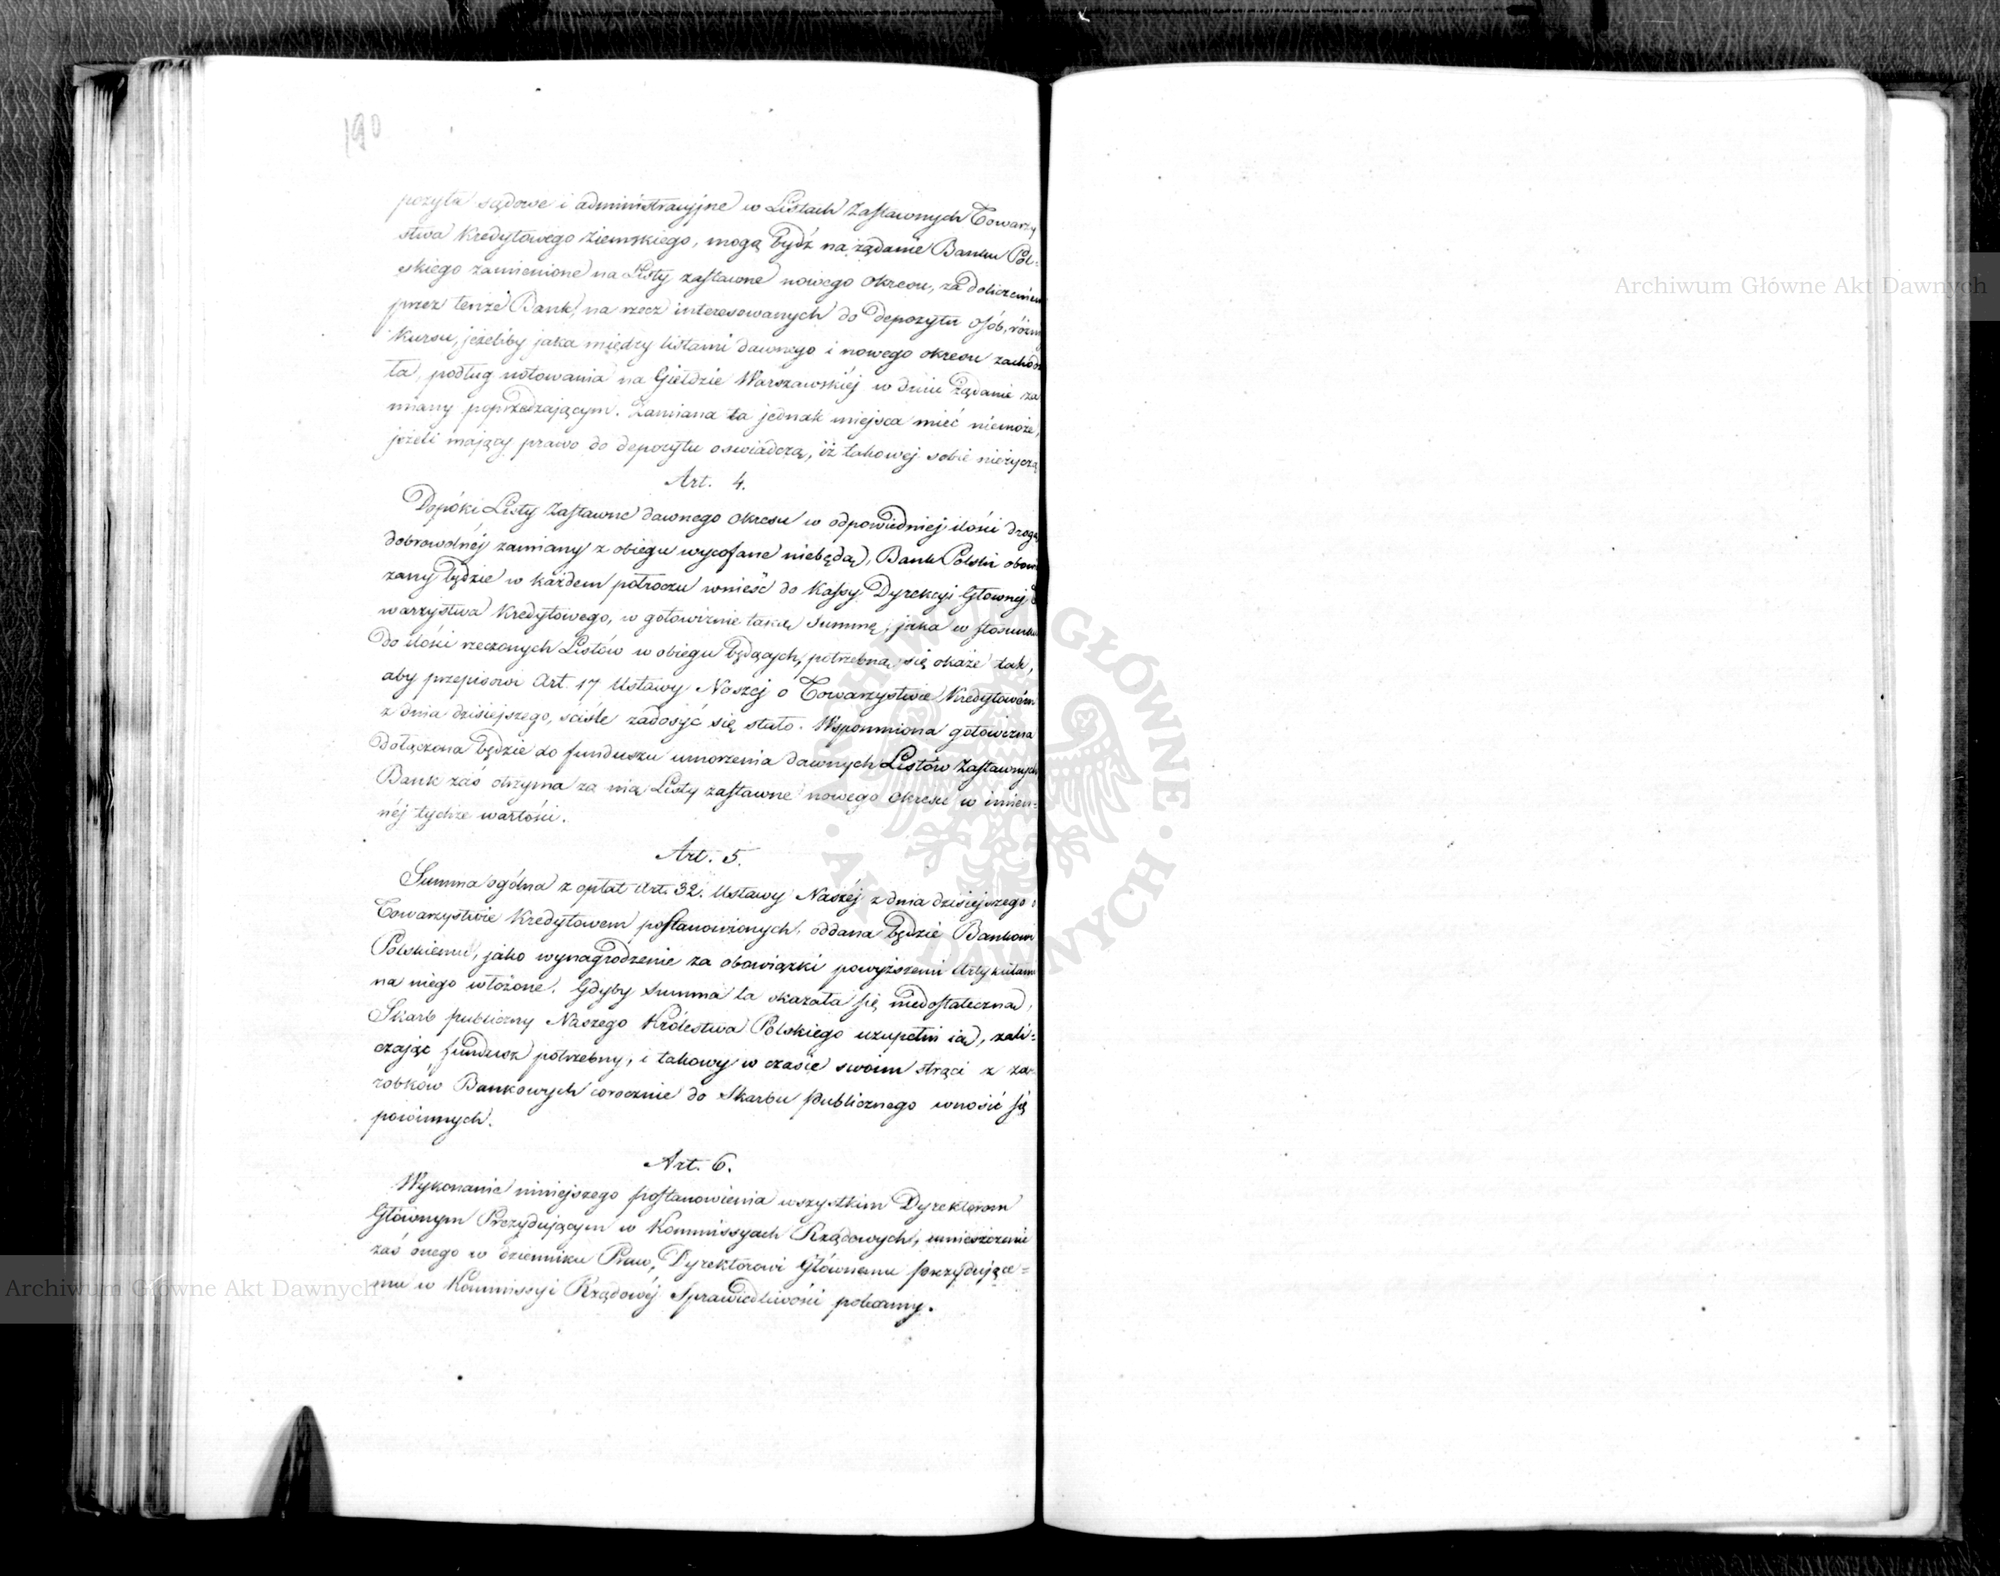 190
pozyta sądowe i administracyjne w Listach Zastawnych Towarzy
stwa Kredytowego Ziemskiego, mogą bydź na żądanie Banku Pol-
skiego zamienione na Listy zastawne nowego Okresu, za doliczeniem
przez tenże Bank, na rzecz interesowanych do depozytu osób, różni
Kursu, jeżeliby jaka między listami dawnego i nowego okresu zachodzi
ła, podług notowania na Giełdzie Warszawskiéj w dniu żądanie za
miany poprzedzającym. Zamiana ta jednak miejsca mieć niemoże,
jeżeli mający prawo do depozytu oswiadczą, iż takowej sobie nieżyczą
Art. 4.
Dopóki Listy Zastawne dawnego Okresu w odpowiedniej ilości drogą
dobrowolnéj zamiany z obiegu wycofane niebędą, Bank Polski obowi
zany będzie w każdem półroczu wnieść do Kassy Dyrekcyi Głównej
warzystwa Kredytowego, w gotowiznie taką Summę, jaka w stosunku
do ilości rzeczonych Listów w obiegu będących, potrzebną się okaże tak,
aby przepisowi Art. 17 Ustawy Naszej o Towarzystwie Kredytowém
z dnia dzisiejszego, ściśle zadosyć się stało. Wspomniona gotowizna
dołączona będzie do funduszu umorzenia dawnych Listów Zastawnych
Bank zaś otrzyma za nią Listy zastawne nowego Okresu w imien-
néj tychże wartości.
Art. 5.
Summa ogólna z opłat Art. 32. Ustawy Naszéj z dnia dzisiejszego
Towarzystwie Kredytowem postanowionych, oddana będzie Bankowi
Polskiemu, jako wynagrodzenie za obowiązki powyższemi Artykułami
na niego włożone. Gdyby Summa ta okazała się niedostateczną,
Skarb publiczny Naszego Królestwa Polskiego uzupełni ią, zali-
czając fundusz potrzebny, i takowy w czasie swoim strąci z za-
robków Bankowych corocznie do Skarbu Publicznego wnosić się
powinnych.
Art. 6.
Wykonanie niniejszego postanowienia wszystkim Dyrektorom
Głównym Prezydującym w Kommissyach Rządowych, umieszczenie
zaś onego w dzienniku Praw, Dyrektorowi Głównemu prezydujące-
mu w Kommissyi Rządowéj Sprawiedliwości polecamy.
Archiwum Główne Akt Dawnych
Archiwum Główne Akt Dawnych
ARCHIWUM GŁÓWNE AKT DAWNYCH